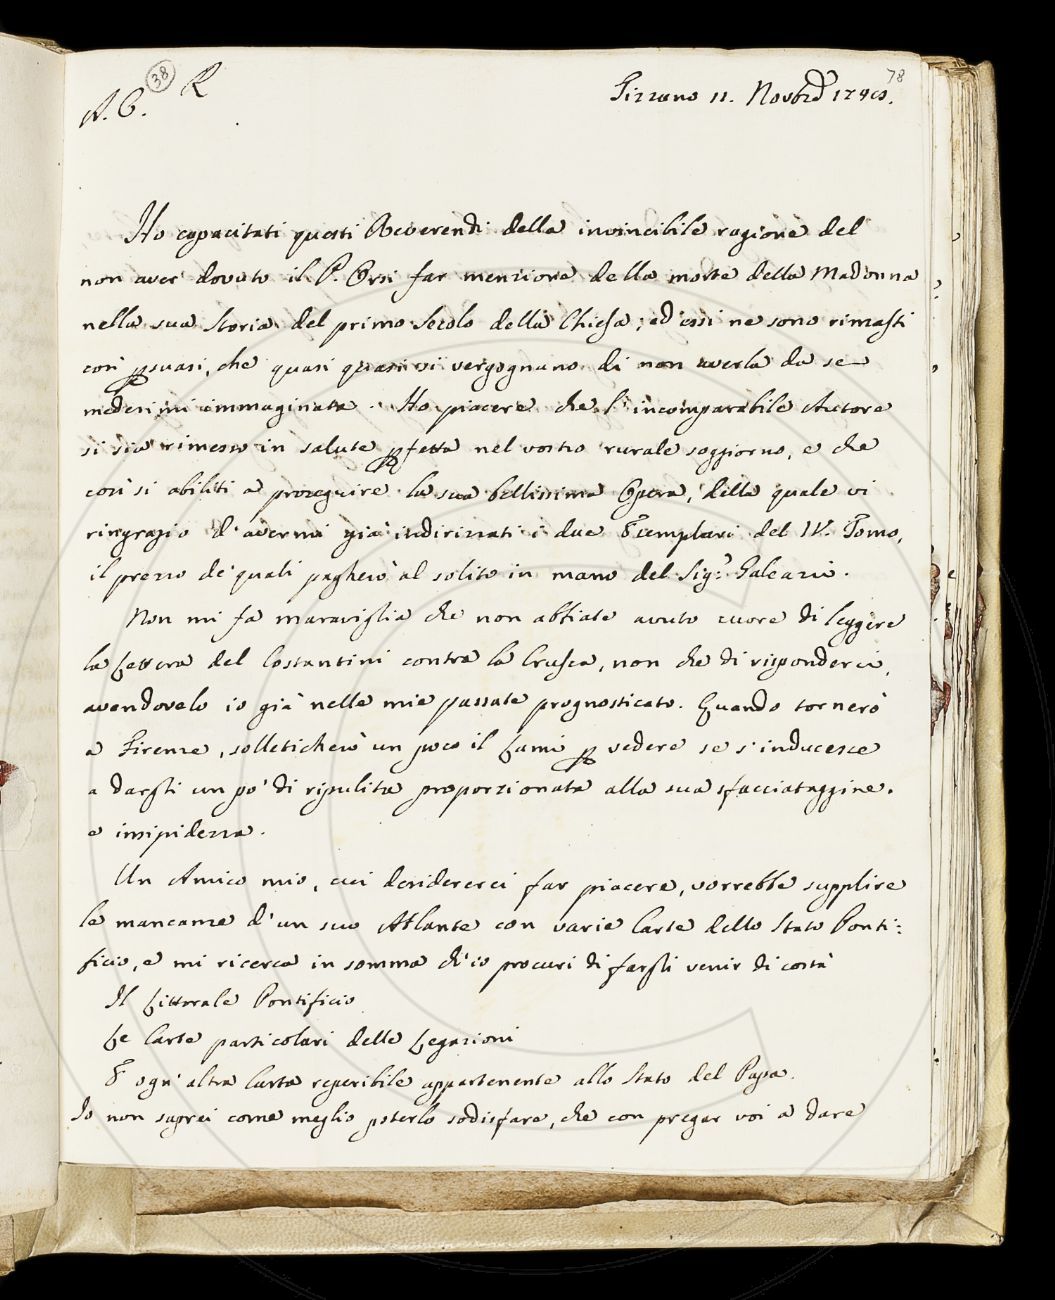 38
R
78
A. C.
Fizzano 11. Novbre 1748.
Ho capacitati questi Reverendi della invincibile ragione del
non aver dovuto il P. Orsi far menzione della morte della Madonna
nella sua Storia del primo Secolo della Chiesa; ed essi ne sono rimasti
così psuasi, che quasi quasi si vergognano di non averla da se
medesimi immaginata. Ho piacere che l'incomparabile Autore
si sia rimesso in salute pfetta nel vostro rurale soggiorno, e che
così si abiliti a proseguire la sua bellissima Opera, della quale vi
ringrazio d'avermi già indirizzati i due Esemplari del IV. Tomo,
il prezzo de' quali pagherò al solito in mano del Sigr. Galeazzi.
Non mi fa maraviglia che non abbiate avuto cuore di leggere
la Lettera del Costantini contra la Crusca, non che di risponderci,
avendovelo io già nelle mie passate prognosticato. Quando tornerò
a Firenze, solleticherò un poco il Lami p vedere se s'inducesse
a dargli un po' di ripulita proporzionata alla sua sfacciataggine.
e insipidezza.
Un Amico mio, cui desidererei far piacere, vorrebbe supplire
le mancanze d'un suo Atlante con varie Carte dello Stato Ponti:
ficio, e mi ricerca in somma ch'io procuri di fargli venir di costà
Il Littorale Pontificio
Le Carte particolari delle Legazioni
E ogn'altra Carta reperibile appartenente allo Stato del Papa.
Io non saprei come meglio poterlo sodisfare, che con pregar voi a dare